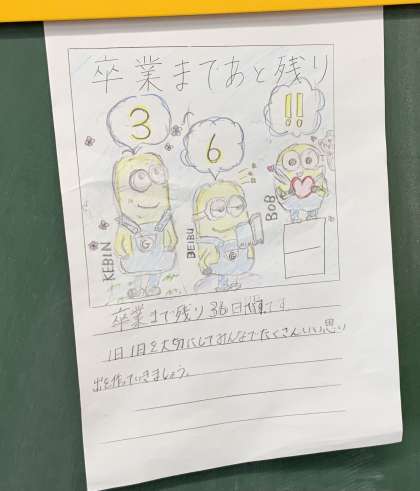 卒業まであと残り
3
6
!!
KEBIN
DEIBU
BOB
卒業まで残り36日です。
1日1日を大切にしてみんなでたくさんいい思い
出を作っていきましょう。